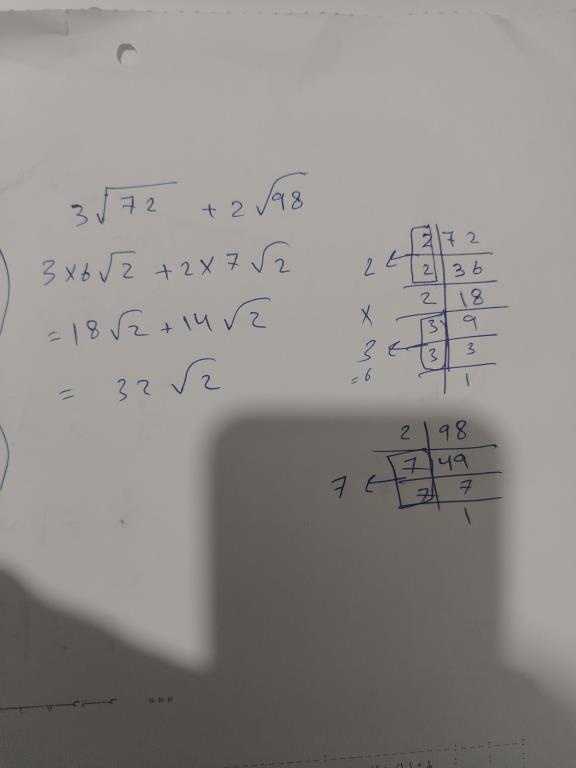 3√72 + 2√98
3×6√2 + 2×7√2
= 18√2 + 14√2
= 32√2
2 | 72
2 ← 2 | 36
× 2 | 18
3 | 9
3 ← 3 | 3
=6 | 1
2 | 98
7 | 49
7 ← 7 | 7
1